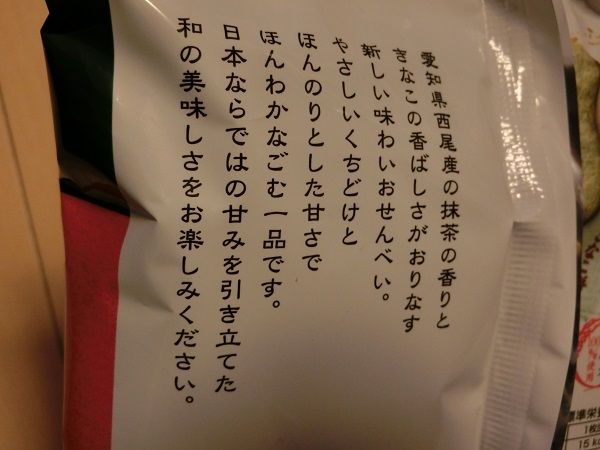 愛知県西尾産の抹茶の香りと
きなこの香ばしさがおりなす
新しい味わいおせんべい。
やさしいくちどけと
ほんのりとした甘さで
ほんわかなごむ一品です。
日本ならではの甘みを引き立てた
和の美味しさをお楽しみください。
標準栄
1枚
15 kc